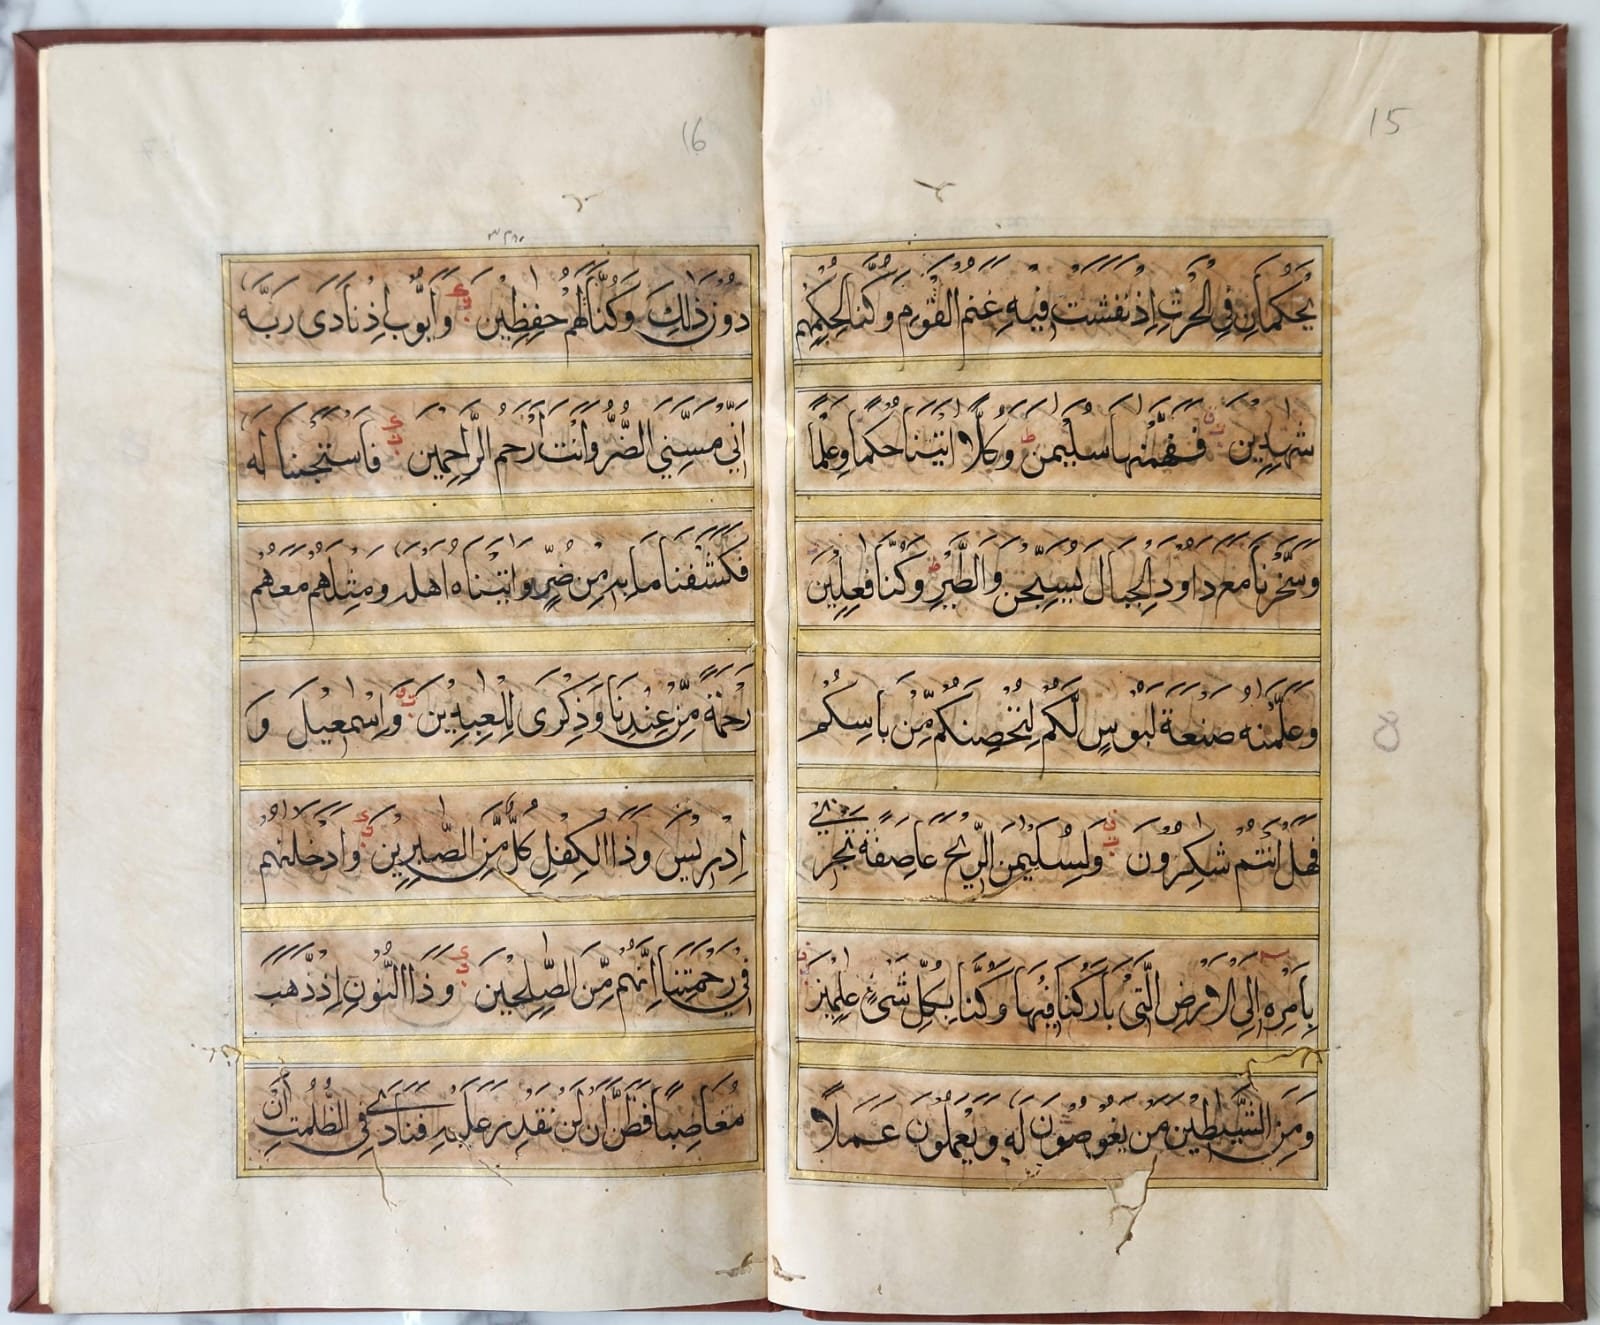 15
يَحْكُمَانِ فِي الْحَرْثِ اِذْ نَفَشَتْ فِيْهِ غَنَمُ الْقَوْمِ وَكُنَّا لِحُكْمِهِمْ
شٰهِدِيْنَ فَفَهَّمْنٰهَا سُلَيْمٰنَ ط وَكُلًّا اٰتَيْنَا حُكْمًا وَّعِلْمًا
وَسَخَّرْنَا مَعَ دَاوٗدَ الْجِبَالَ يُسَبِّحْنَ وَالطَّيْرَ ط وَكُنَّا فٰعِلِيْنَ
وَعَلَّمْنٰهُ صَنْعَةَ لَبُوْسٍ لَّكُمْ لِتُحْصِنَكُمْ مِّنْ بَاْسِكُمْ
فَهَلْ اَنْتُمْ شٰكِرُوْنَ وَلِسُلَيْمٰنَ الرِّيْحَ عَاصِفَةً تَجْرِيْ
بِاَمْرِهٖ اِلَى الْاَرْضِ الَّتِيْ بَارَكْنَا فِيْهَا وَكُنَّا بِكُلِّ شَيْءٍ عٰلِمِيْنَ
وَمِنَ الشَّيٰطِيْنِ مَنْ يَّغُوْصُوْنَ لَهٗ وَيَعْمَلُوْنَ عَمَلًا
16
دُوْنَ ذٰلِكَ وَكُنَّا لَهُمْ حٰفِظِيْنَ وَاَيُّوْبَ اِذْ نَادٰى رَبَّهٗ
اَنِّيْ مَسَّنِيَ الضُّرُّ وَاَنْتَ اَرْحَمُ الرّٰحِمِيْنَ فَاسْتَجَبْنَا لَهٗ
فَكَشَفْنَا مَا بِهٖ مِنْ ضُرٍّ وَّاٰتَيْنَاهُ اَهْلَهٗ وَمِثْلَهُمْ مَّعَهُمْ
رَحْمَةً مِّنْ عِنْدِنَا وَذِكْرٰى لِلْعٰبِدِيْنَ وَاِسْمٰعِيْلَ وَ
اِدْرِيْسَ وَذَا الْكِفْلِ كُلٌّ مِّنَ الصّٰبِرِيْنَ وَاَدْخَلْنٰهُمْ
فِيْ رَحْمَتِنَا اِنَّهُمْ مِّنَ الصّٰلِحِيْنَ وَذَا النُّوْنِ اِذْ ذَّهَبَ
مُغَاضِبًا فَظَنَّ اَنْ لَّنْ نَّقْدِرَ عَلَيْهِ فَنَادٰى فِي الظُّلُمٰتِ اَنْ